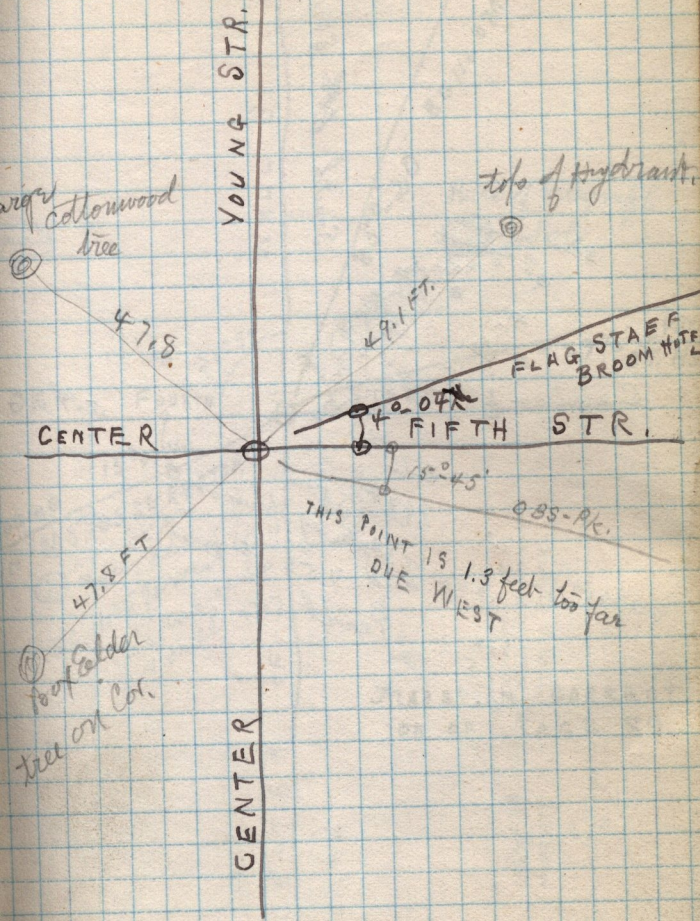 YOUNG STR.
top of Hydrant.
Cottonwood
tree
47.8
49.1 FT.
FLAG STAFF
BROOM HOTEL
4°-04
CENTER
FIFTH STR.
15°-45'
OBS-Pk.
THIS POINT IS 1.3 feet too far
DUE WEST
47.8 FT
Box Eelder
tree on Cor.
CENTER